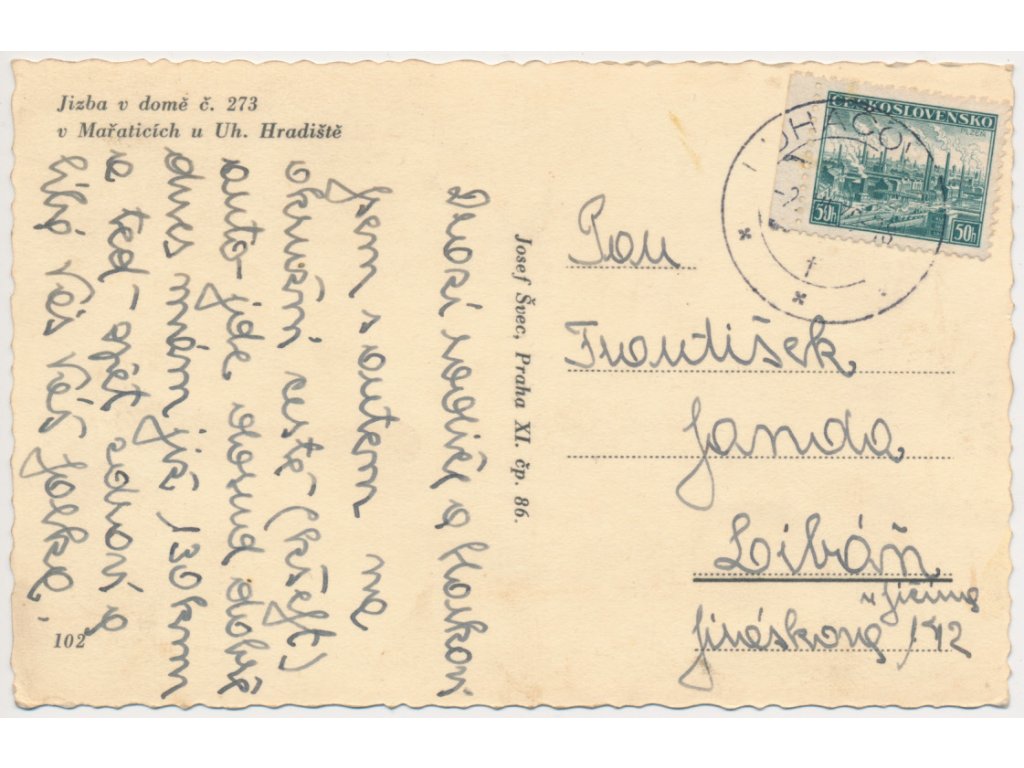 Jizba v domě č. 273
v Mařaticích u Uh. Hradiště
Drazí rodiče a
jsem s autem na
okružní cestě (kšeft)
auto jde dosud dobře
dnes mám jis 130 km
a teď opět znovu a
Vás Váš
102
Josef Švec, Praha XI. čp. 86.
ČESKOSLOVENSKO
PLZEŇ
50h 50h
LUHAČOV
Pan
František
Janda
Libáň
u Jičína